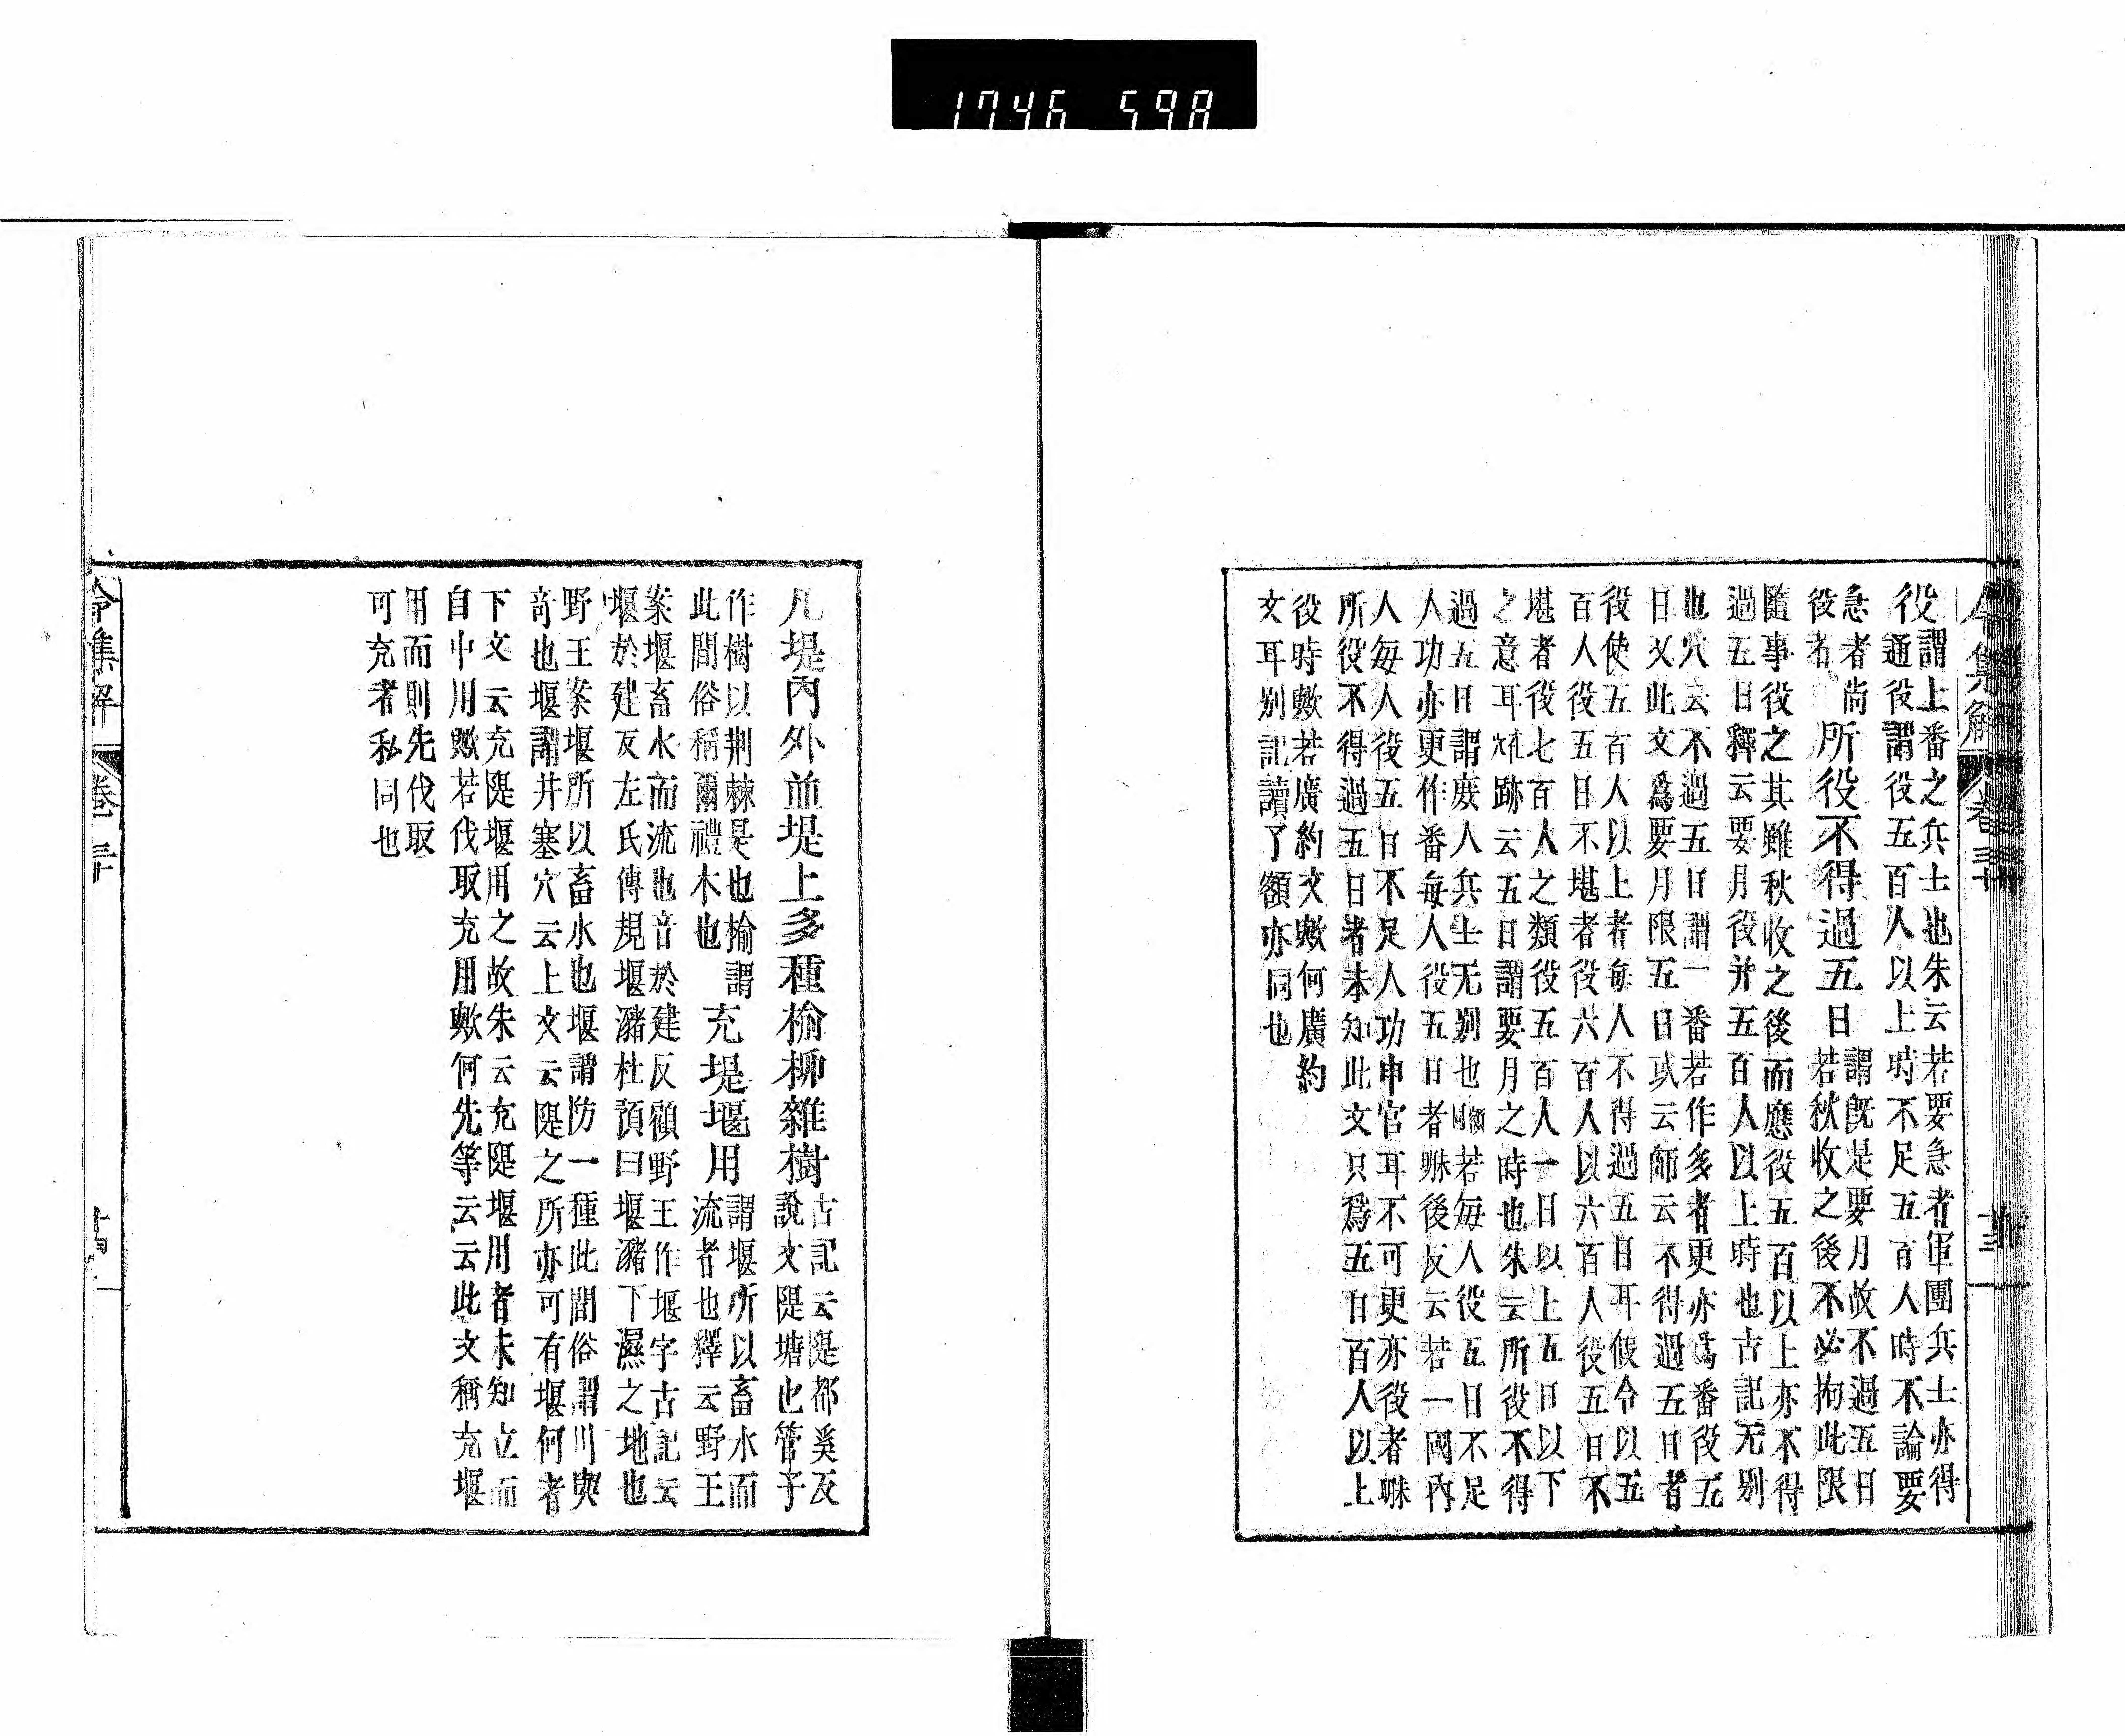 令集解 卷三十 廿三
役
謂上番之兵士也朱云若要急者軍團兵士亦得
通役謂役五百人以上時不足五百人時不論要
急者尚
役者
所役不得過五日
謂旣是要月故不過五日
若秋收之後不必拘此限
隨事役之其雖秋收之後而應役五百以上亦不得
過五日釋云要月役并五百人以上時也古記无别
也穴云不過五日謂一番若作多者更亦爲番役五
日文此文爲要月限五日或云師云不得過五日者
役使五百人以上者每人不得過五日耳假令以五
百人役五日不堪者役六百人以六百人役五日不
堪者役七百人之類役五百人一日以上五日以下
之意耳跡云五日謂要月之時也朱云所役不得
過五日謂庶人兵士无别也額同若每人役五日不足
人功亦更作番每人役五日者哧後反云若一國內
人每人役五日不足人功申官耳不可更亦役者哧
所役不得過五日者未知此文只爲五日百人以上
役時歟若廣約文歟何廣約
文耳别記讀了額亦同也
凡堤內外並堤上多種榆柳雜樹
古記云隄都奚反
說文隄塘也管子
作樹以荆棘是也榆謂
此間俗稱爾禮木也
充堤堰用
謂堰所以畜水而
流者也釋云野王
案堰畜水而流也音於建反顧野王作堰字古記云
堰於建反左氏傳規堰瀦杜預曰堰瀦下濕之地也
野王案堰所以畜水也堰謂防一種此間俗謂川與
奇也堰謂井塞穴云上文云隄之所亦可有堰何者
下文云充隄堰用之故朱云充隄堰用者未知立而
自中用歟若伐取充用歟何先等云云此文稱充堰
用而則先伐取
可充者私同也
令集解 卷三十 廿四
1746 598